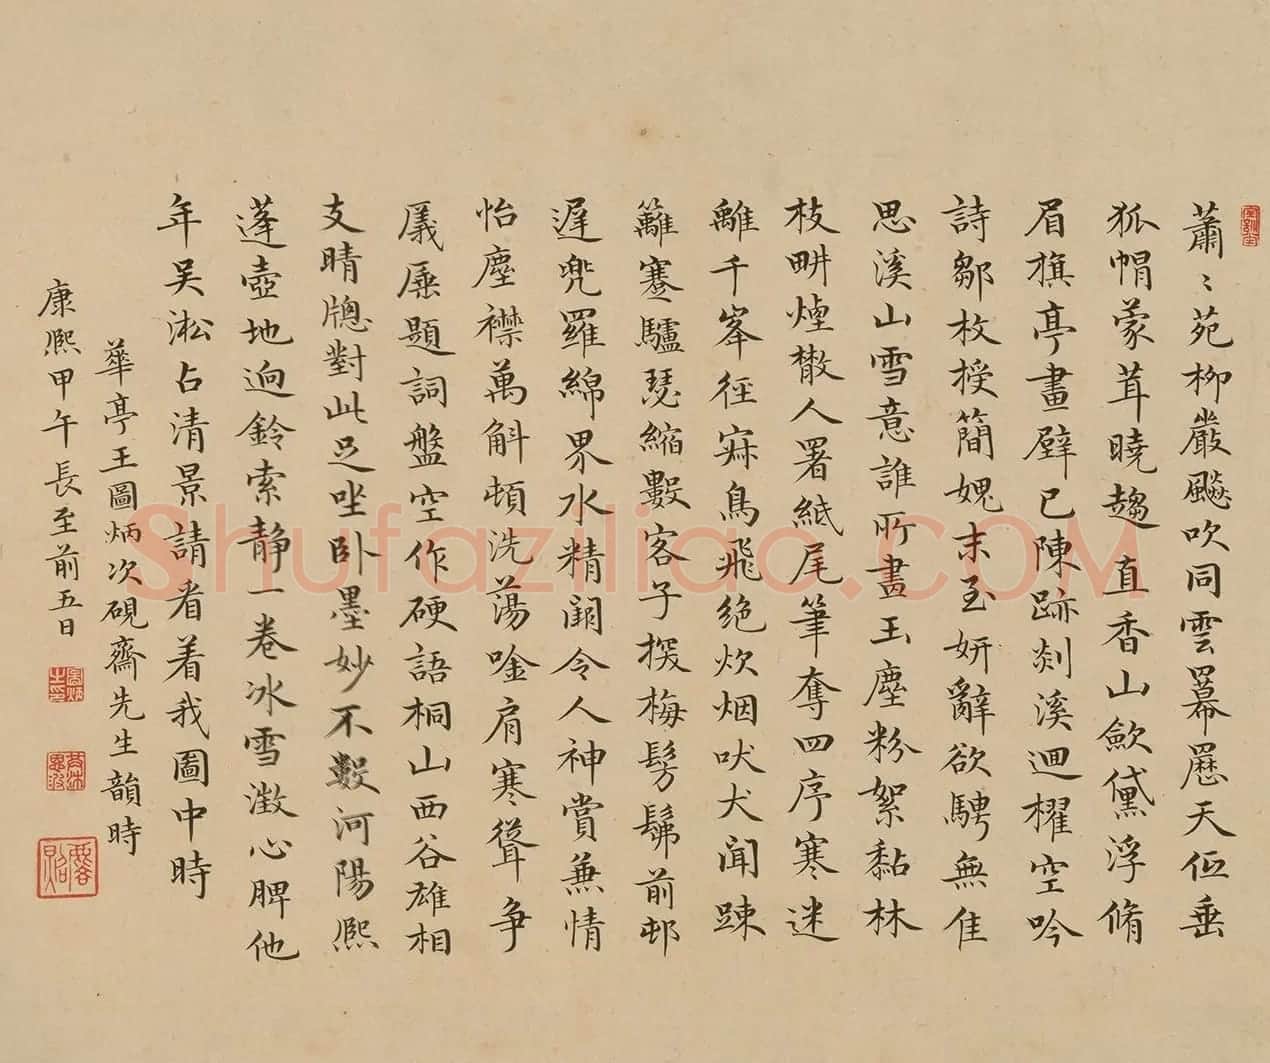 蕭〻苑柳嚴飈吹同雲羃歷天低垂
狐帽蒙茸曉趨直香山歛黛浮脩
眉旗亭畫壁已陳跡剡溪迴櫂空吟
詩鄒枚授簡媿末至妍辭欲騁無隹
思溪山雪意誰所畫玉塵粉絮黏林
枝畊煙散人署紙尾筆奪四序寒迷
離千峯徑寂鳥飛絕炊烟吠犬聞踈
籬蹇驢瑟縮數客子探梅髣髴前邨
遲兜羅綿界水精闕令人神賞兼情
怡塵襟萬斛頓洗蕩唫肩寒聳爭
羲屢題詞盤空作硬語桐山西谷雄相
支晴牕對此足坐卧墨妙不數河陽熈
蓬壺地逈鈴索静一卷冰雪澂心脾他
年吴淞占清景請看着我圖中時
華亭王圖炳次硯齋先生韻時
康熙甲午長至前五日
Shufaziliao.COM